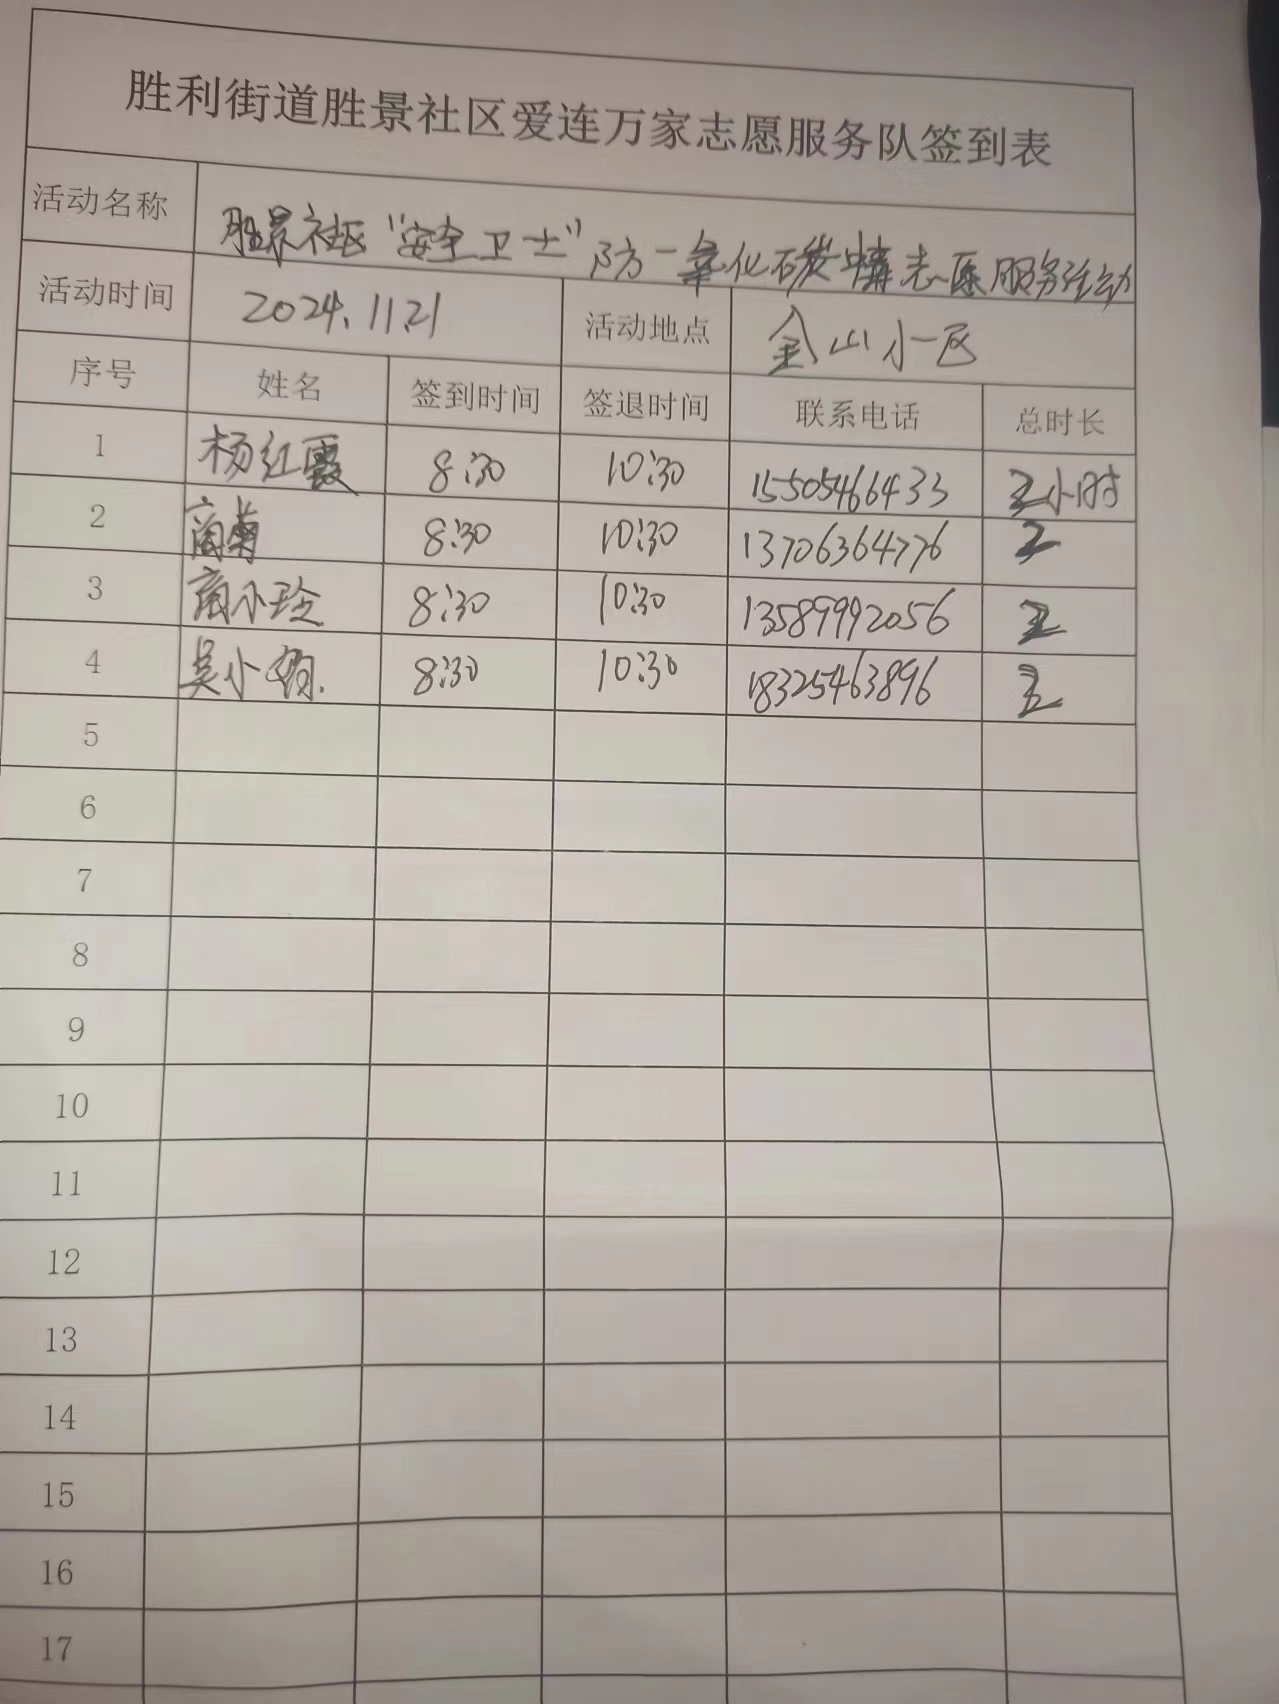 胜利街道胜景社区爱连万家志愿服务队签到表
活动名称 胜景社区“安全卫士”防一氧化碳 志愿服务活动
活动时间 2024.11.21 活动地点 金山小区
序号 姓名 签到时间 签退时间 联系电话 总时长
1 杨红霞 8:30 10:30 15505466433 2小时
2 8:30 10:30 13706364776 2
3 小玲 8:30 10:30 13589992056 2
4 吴小 8:30 10:30 18325463896 2
5
6
7
8
9
10
11
12
13
14
15
16
17